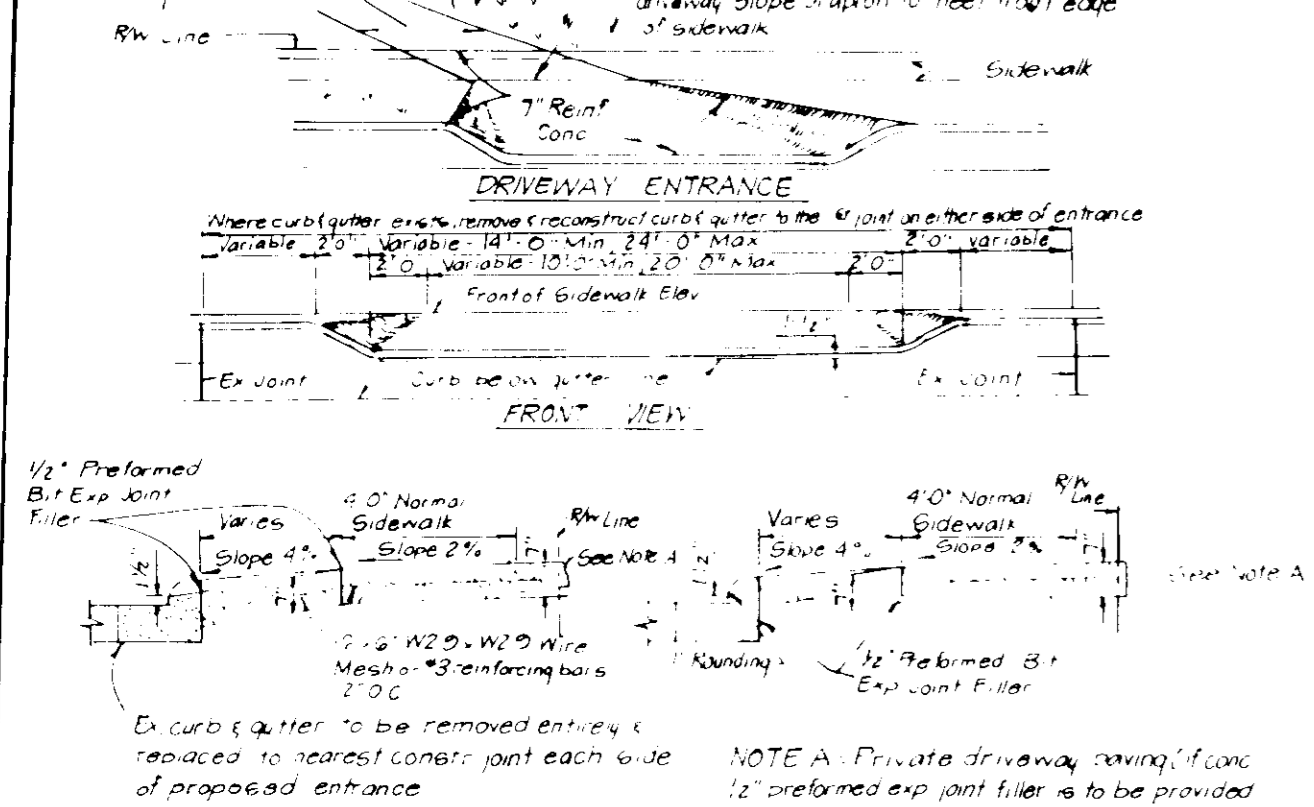 driveway slope or apron to meet front edge
of sidewalk
R/W Line
Sidewalk
7" Reinf
Conc
DRIVEWAY ENTRANCE
Where curb & gutter exists, remove & reconstruct curb & gutter to the joint on either side of entrance
Variable 2'0" Variable - 14'-0" Min 24'-0" Max 2'0" Variable
2'0 Variable - 10'0" Min 20'0" Max 2'0"
Front of Sidewalk Elev
1-1/2"
Ex Joint Curb below gutter line Ex Joint
FRONT VIEW
1/2" Preformed
Bit Exp Joint
Filler
Varies
Slope 4%
4'0" Normal
Sidewalk
Slope 2%
R/W Line
See Note A
1 1/2"
W2.9 x W2.9 Wire
Mesh or #3 reinforcing bars
2'OC
Ex. curb & gutter to be removed entirely &
replaced to nearest constr joint each side
of proposed entrance
Varies
Slope 4%
4'0" Normal
Sidewalk
Slope 2%
R/W
Line
See Note A
1" Rounding
1/2" Preformed Bit
Exp Joint Filler
NOTE A: Private driveway paving, if conc
1/2" preformed exp joint filler is to be provided